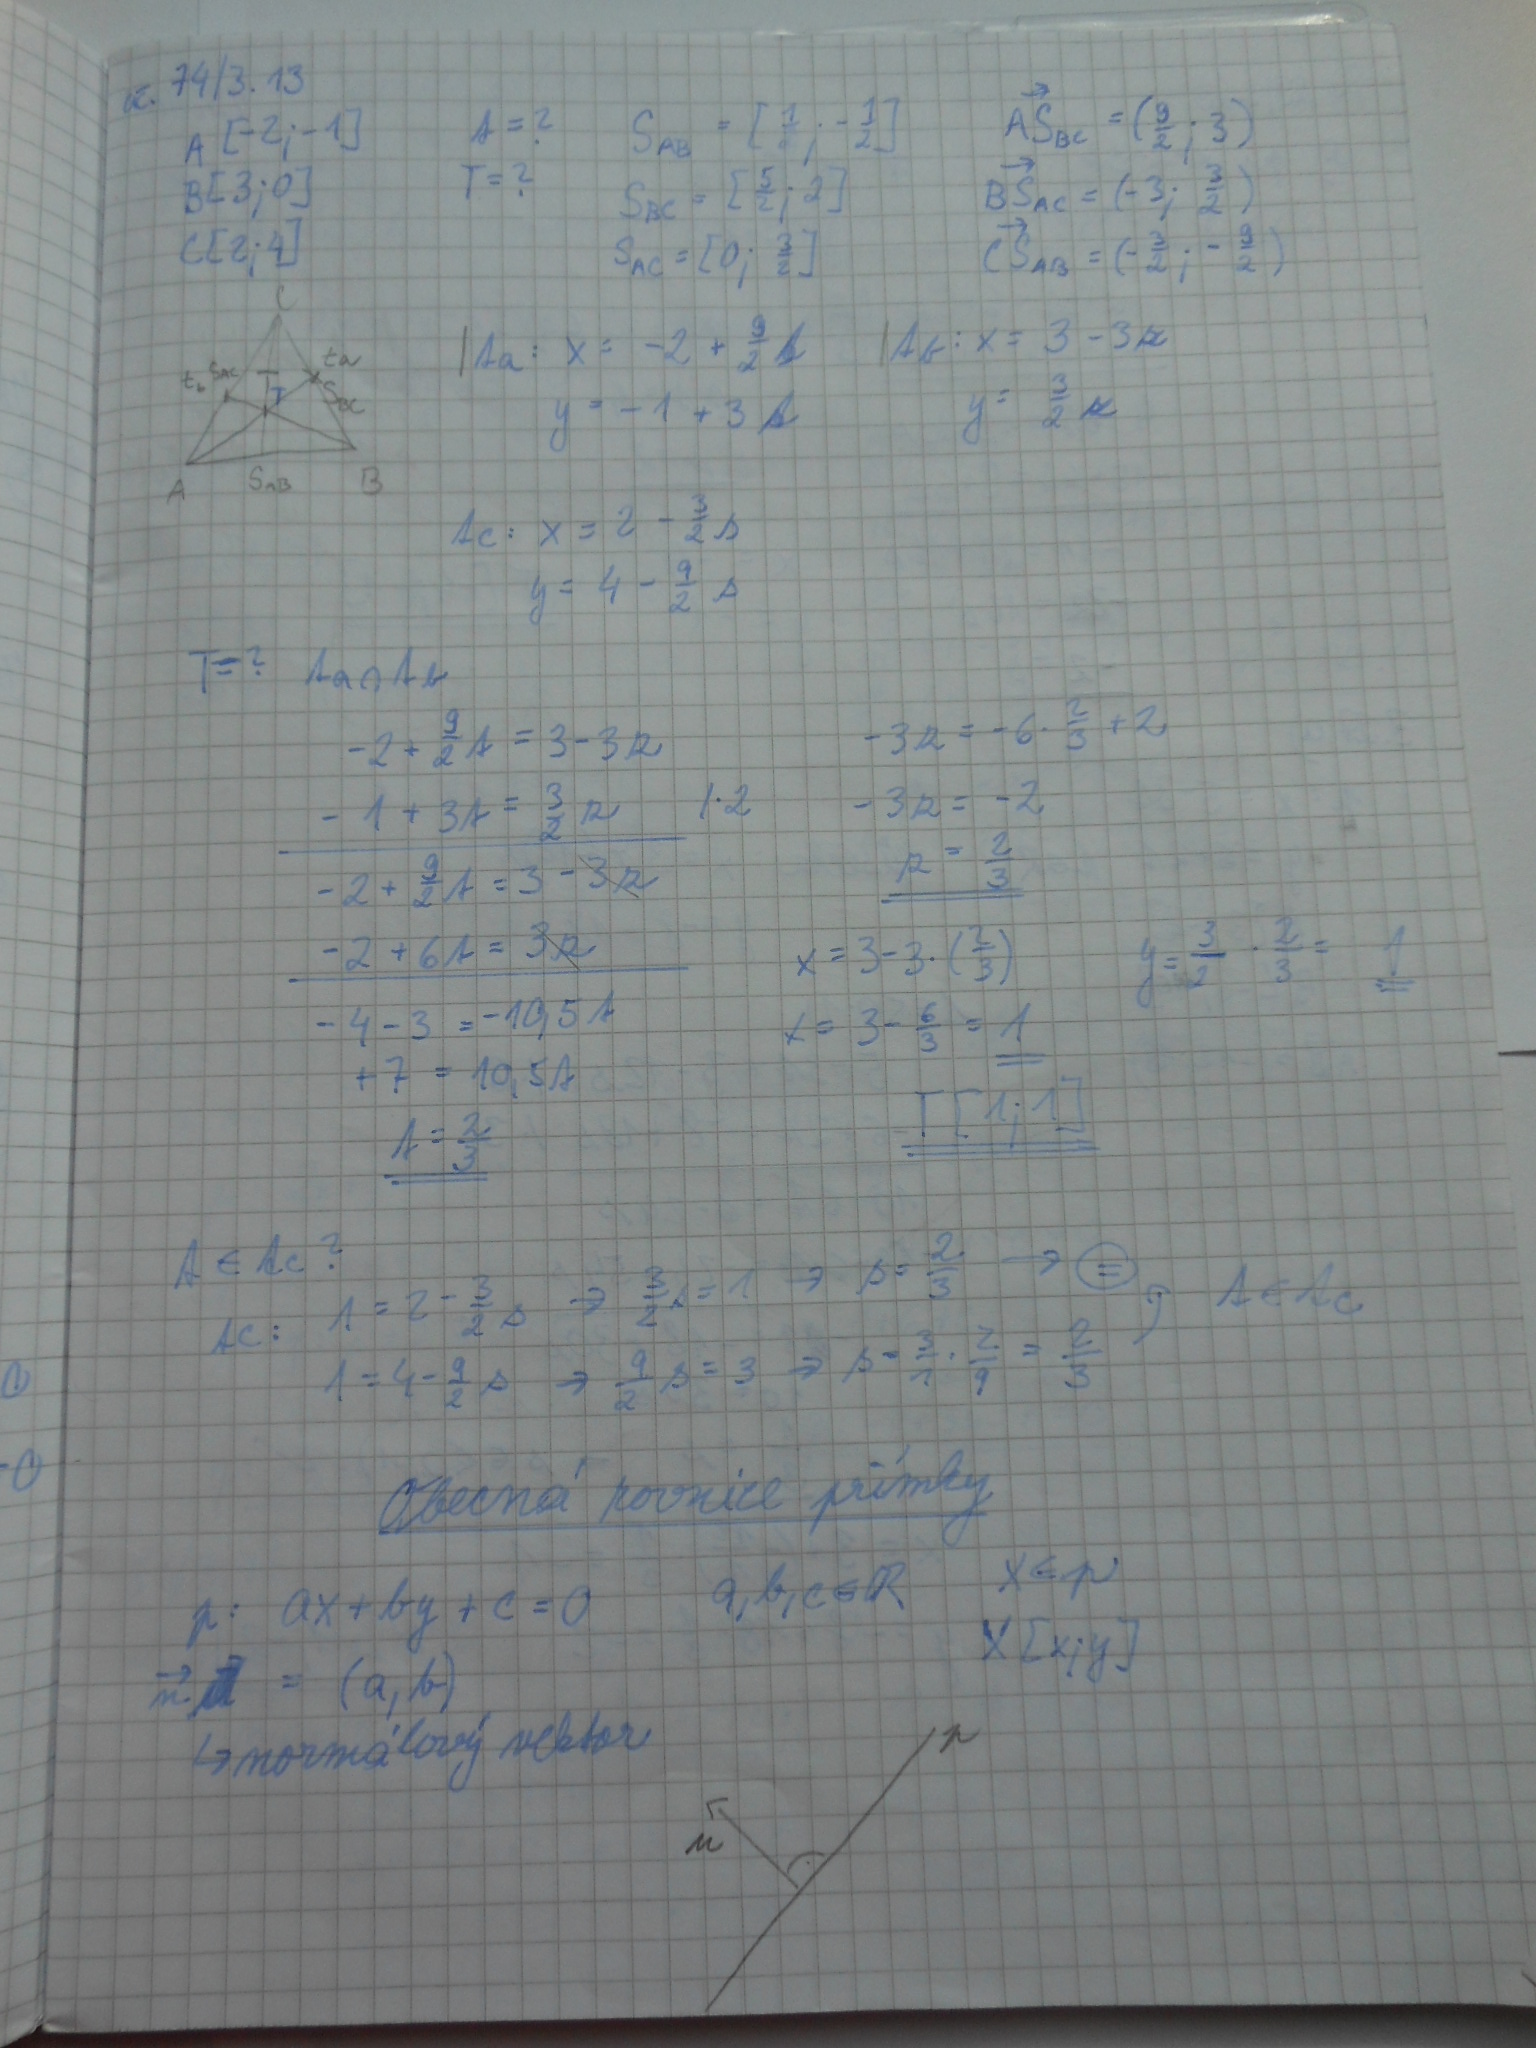 74/3.13
A [-2;-1]   t = ?   S_AB = [1/2; -1/2]   AS_BC = (9/2; 3)
B[3;0]   T = ?   S_BC = [5/2; 2]   BS_AC = (-3; 3/2)
C[2;4]   S_AC = [0; 3/2]   CS_AB = (-3/2; -9/2)
C
t_b S_AC   T   t_a
S_BC
A   S_AB   B
t_a: x = -2 + 9/2 t   t_b: x = 3 - 3r
y = -1 + 3t   y = 3/2 r
t_c: x = 2 - 3/2 s
y = 4 - 9/2 s
T = ?   t_a ∩ t_b
-2 + 9/2 t = 3 - 3r   -3r = -6 · 2/3 + 2
-1 + 3t = 3/2 r   /·2   -3r = -2
-2 + 9/2 t = 3 - 3r   r = 2/3
-2 + 6t = 3r   x = 3 - 3 · (2/3)   y = 3/2 · 2/3 = 1
-4 - 3 = -10,5t   x = 3 - 6/3 = 1
+7 = 10,5t   T[1;1]
t = 2/3
t ∈ t_c ?
t_c: 1 = 2 - 3/2 s → 3/2 s = 1 → s = 2/3 → =   t ∈ t_c
1 = 4 - 9/2 s → 9/2 s = 3 → s = 3/1 · 2/9 = 2/3
Obecná rovnice přímky
p: ax + by + c = 0   a, b, c ∈ R   X ∈ p
n = (a, b)   X [x;y]
↳ normálový vektor
p
n